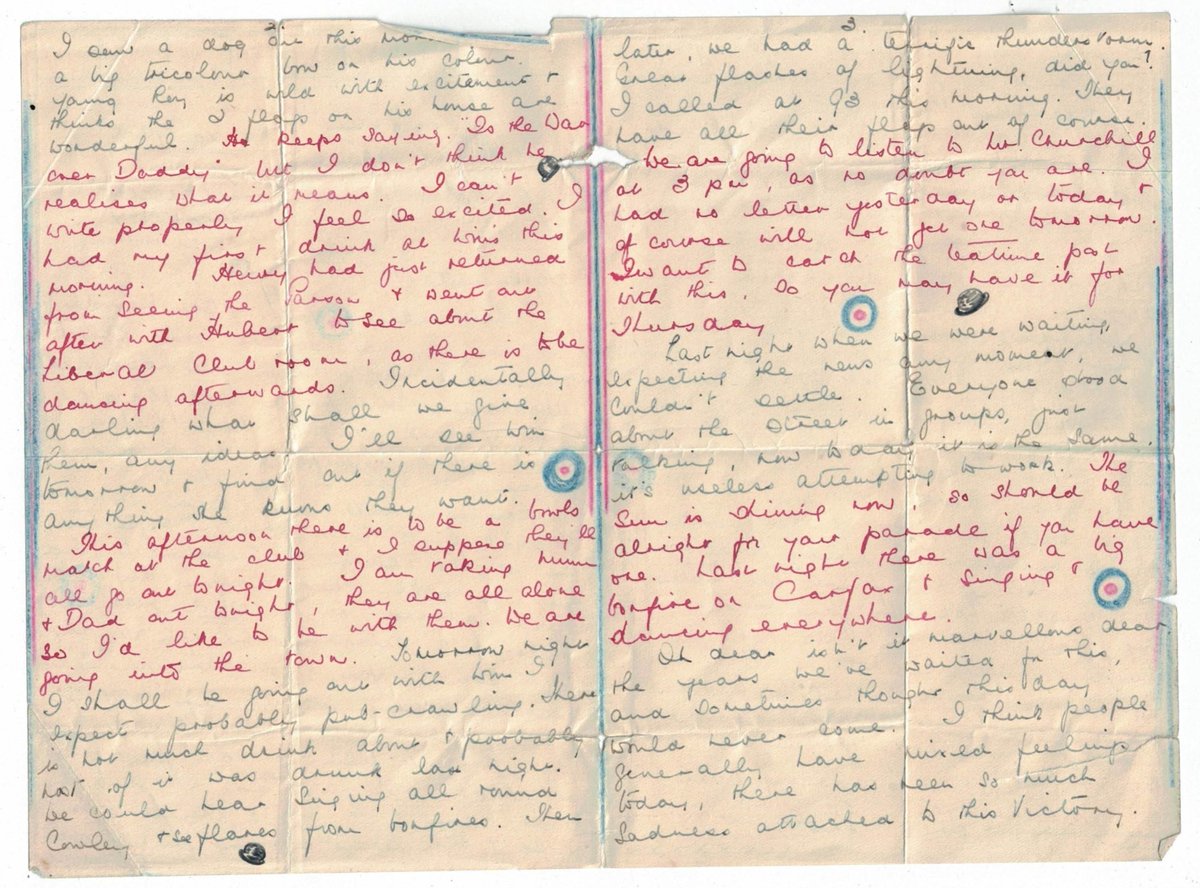 2.
I saw a dog out this mor
a big tricolour bow on his colour.
Young Roy is wild with excitement &
thinks the 3 flags on his house are
wonderful. He keeps saying. "Is the War
over Daddy" but I don't think he
realises what it means. I can't
write properly I feel so excited. I
had my first drink at Win's this
morning. Henry had just returned
from seeing the Parson & went out
after with Hubert to see about the
Liberal Club room, as there is to be
dancing afterwards. Incidentally
darling what shall we give
them, any ideas I'll see Win
tomorrow & find out if there is
anything she knows they want.
This afternoon there is to be a bowls
match at the club & I suppose they'll
all go out tonight. I am taking Mum
& Dad out tonight, they are all alone
so I'd like to be with them. We are
going into the town. Tomorrow night
I shall be going out with Win I
expect probably pub-crawling. There
is not much drink about & probably
most of it was drunk last night.
We could hear singing all round
Cowley & see flares from bonfires. Then
3.
later, we had a terrific thunderstorm.
Great flashes of lightning, did you?
I called at 93 this morning. They
have all their flags out of course.
We are going to listen to Mr. Churchill
at 3 pm, as no doubt you are. I
had no letter yesterday or today &
of course will not get one tomorrow.
I want to catch the teatime post
with this, so you may have it for
Thursday
Last night when we were waiting,
expecting the news any moment, we
couldn't settle. Everyone stood
about the street in groups, just
talking, now today it is the same,
it's useless attempting to work. The
sun is shining now, so should be
alright for your parade if you have
one. Last night there was a big
bonfire on Carfax & singing &
dancing everywhere.
Oh dear isn't it marvellous dear.
the years we've waited for this,
and sometimes thought this day
would never come. I think people
generally have mixed feelings
today, there has been so much
sadness attached to this Victory.